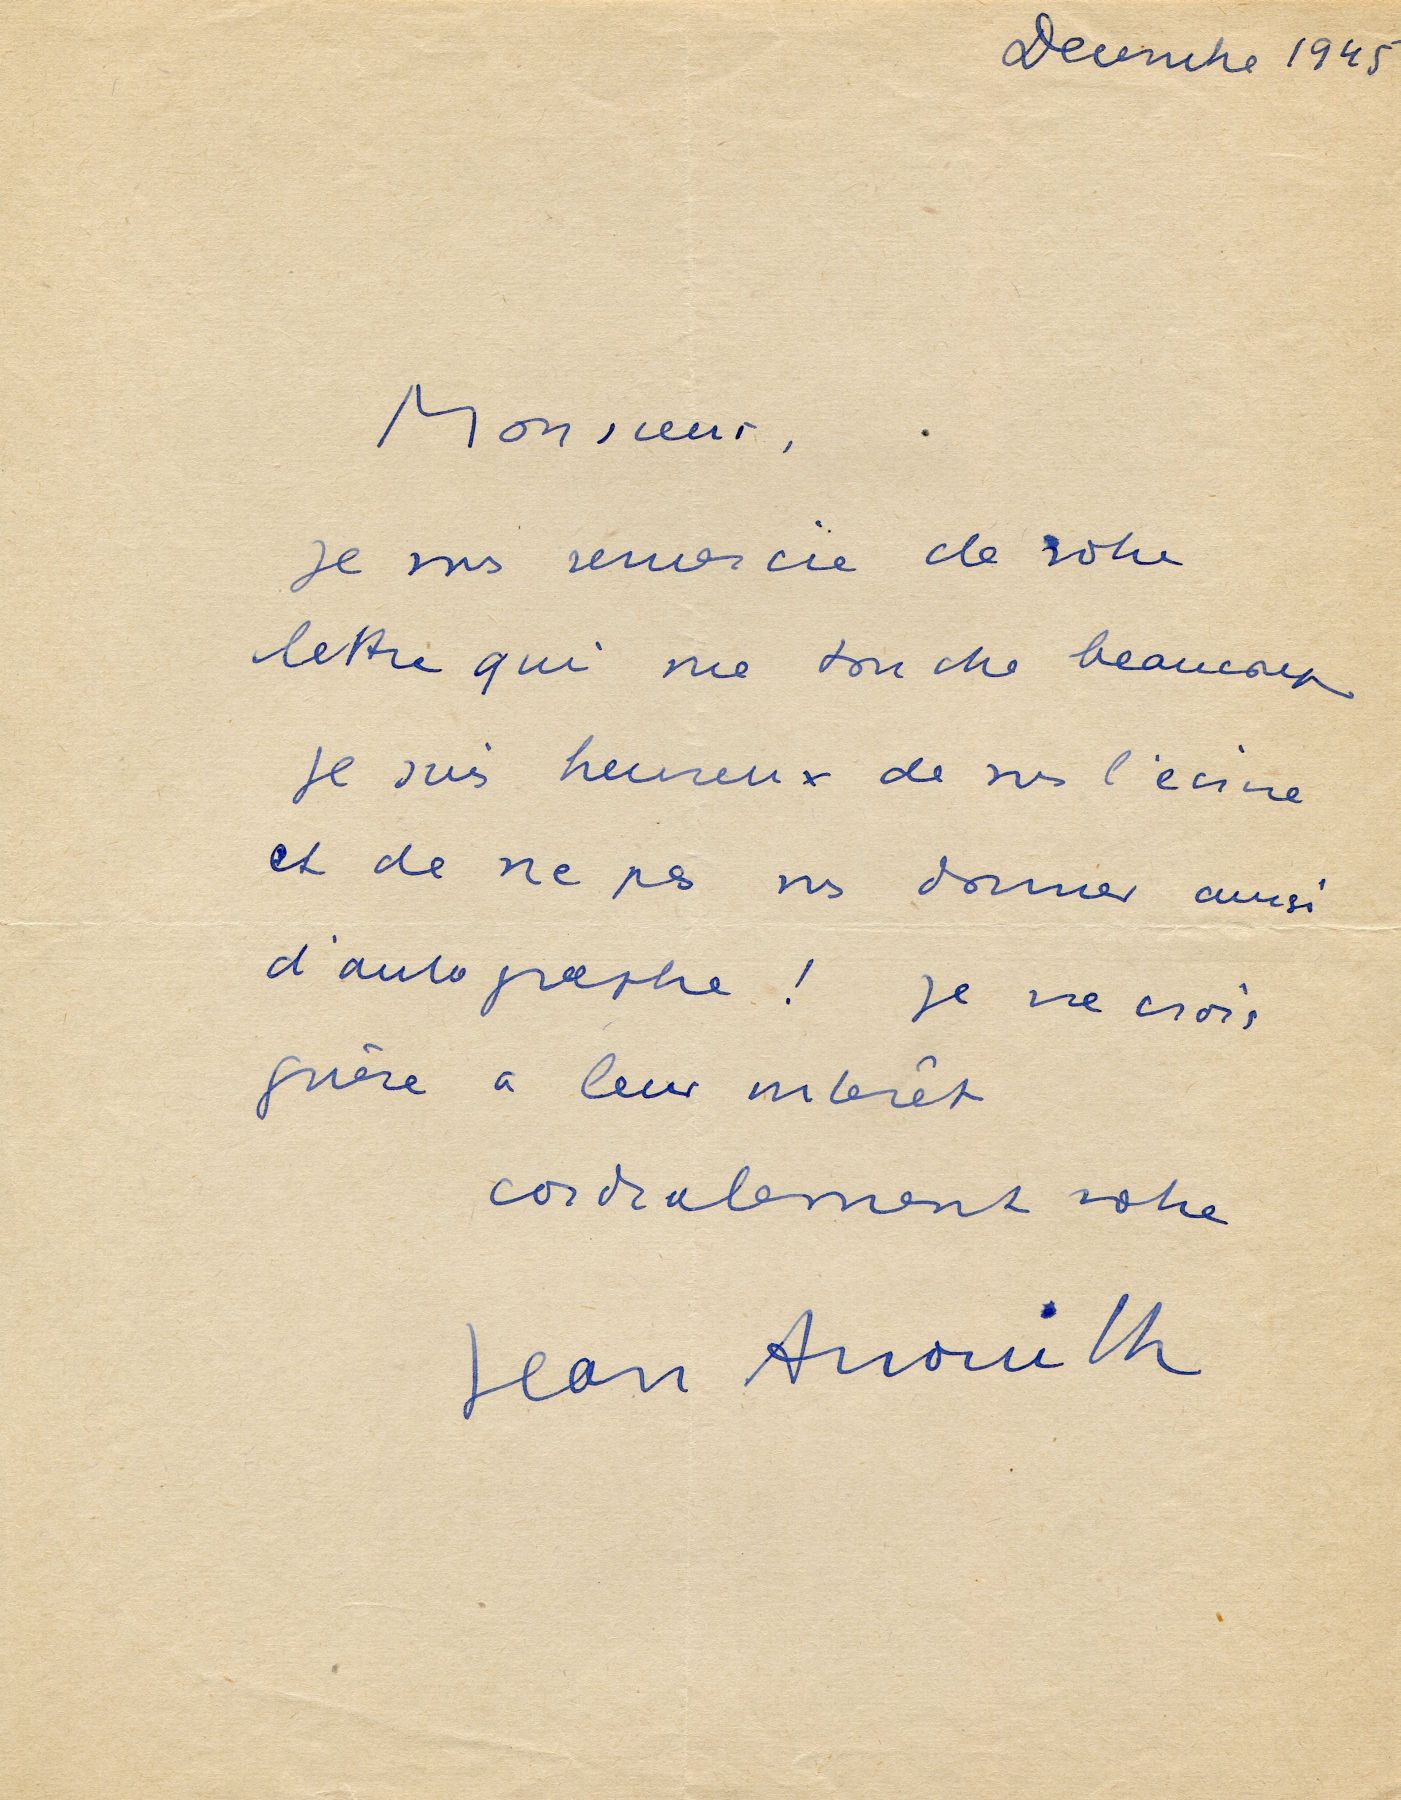 Decembre 1945
Monsieur,
je vous remercie de votre
lettre qui me touche beaucoup
je suis heureux de vous l'écrire
et de ne pas vous donner ainsi
d'autographe ! je ne crois
guère a leur interêt
cordialement votre
Jean Anouilh